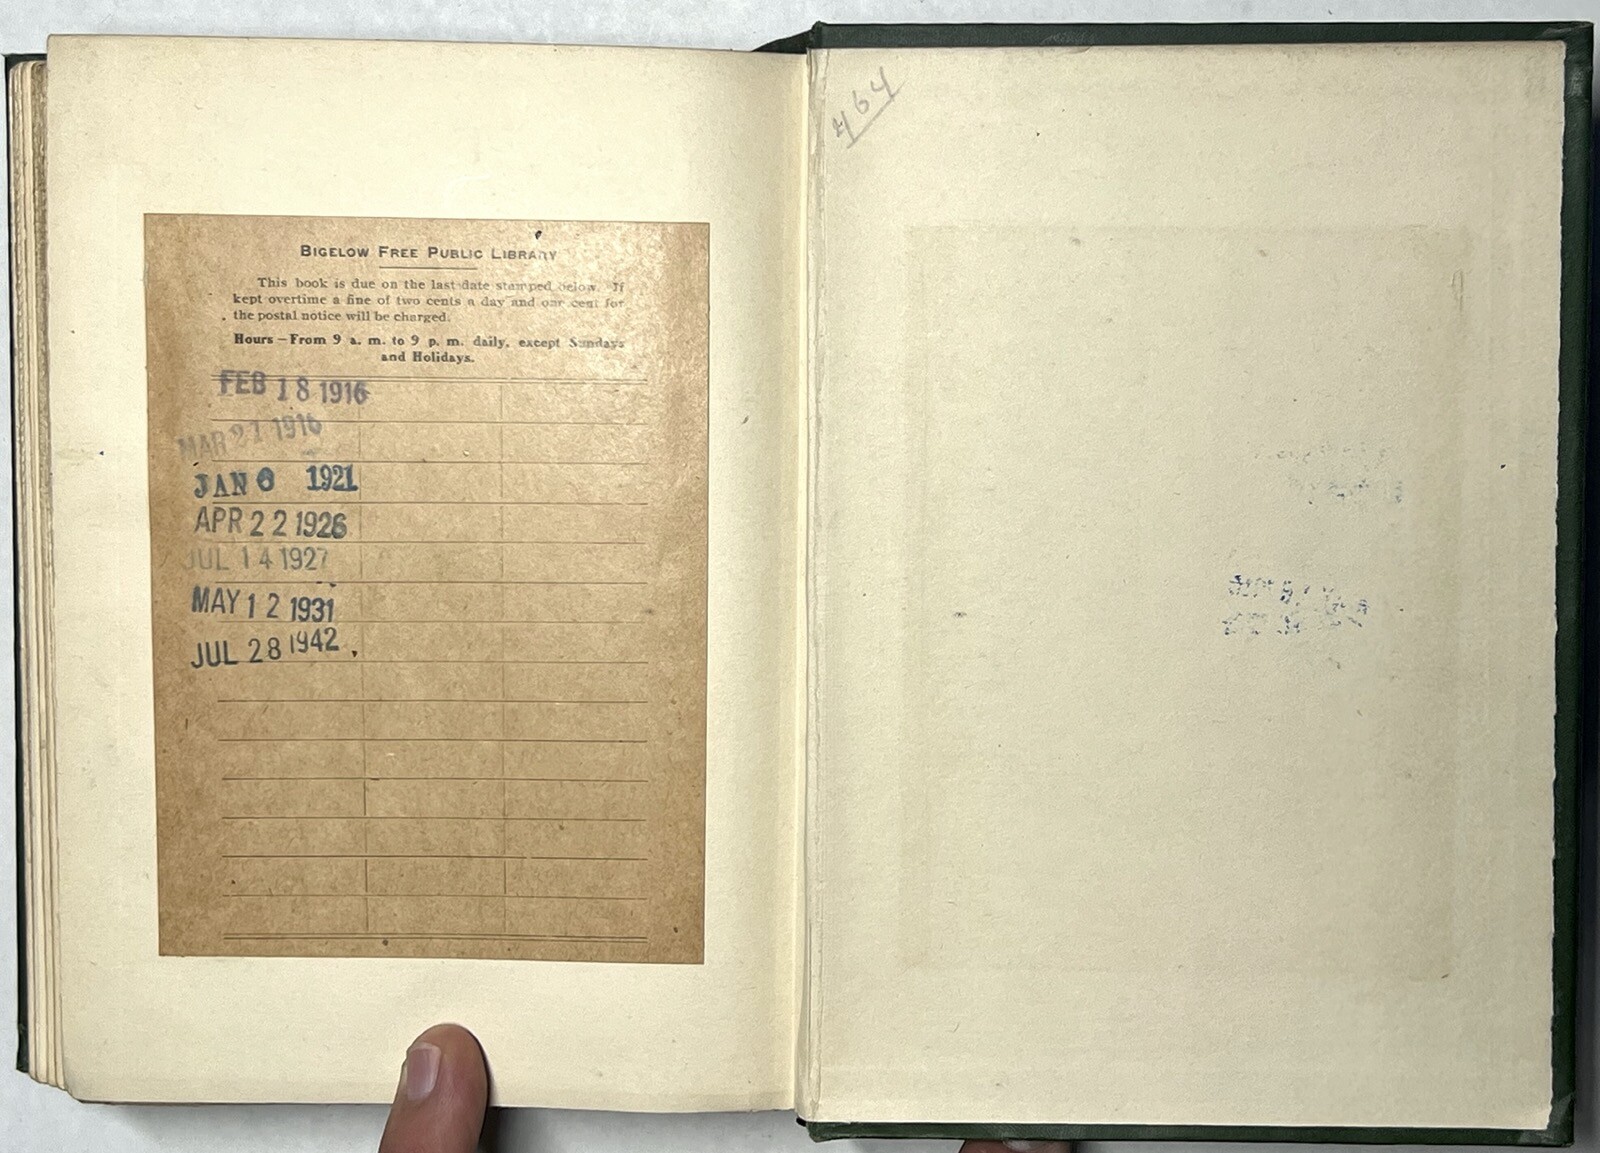 BIGELOW FREE PUBLIC LIBRARY
This book is due on the last date stamped below. If
kept overtime a fine of two cents a day and one cent for
the postal notice will be charged.
Hours – From 9 a. m. to 9 p. m. daily, except Sundays
and Holidays.
FEB 18 1916
MAR 21 1916
JAN 6 1921
APR 22 1926
JUL 14 1927
MAY 12 1931
JUL 28 1942
464